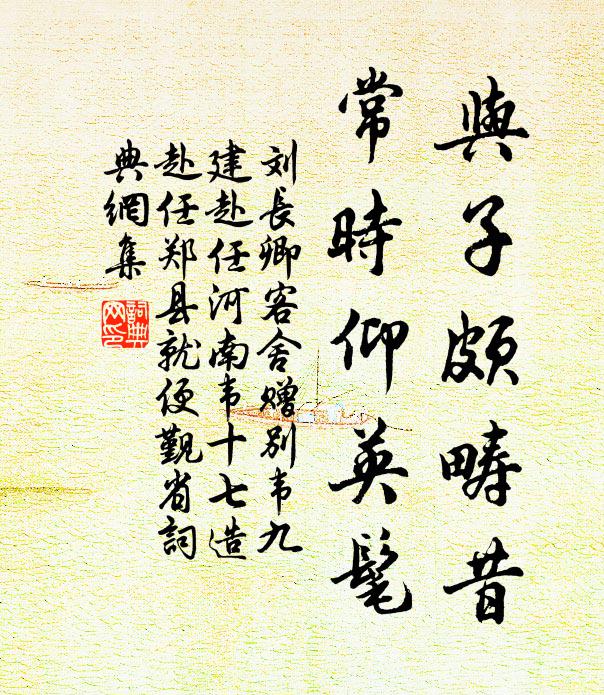 與子頗疇昔
常時仰英髦
刘長卿客舍赠别韦九
建赴任河南韦十七造
赴任郑县就便觐省詞
典網集
詞典網印